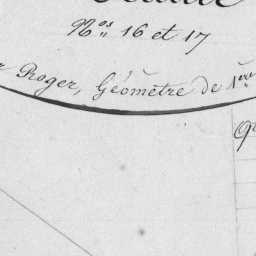 N.os 16 et 17
Roger, Géomètre de 1ère